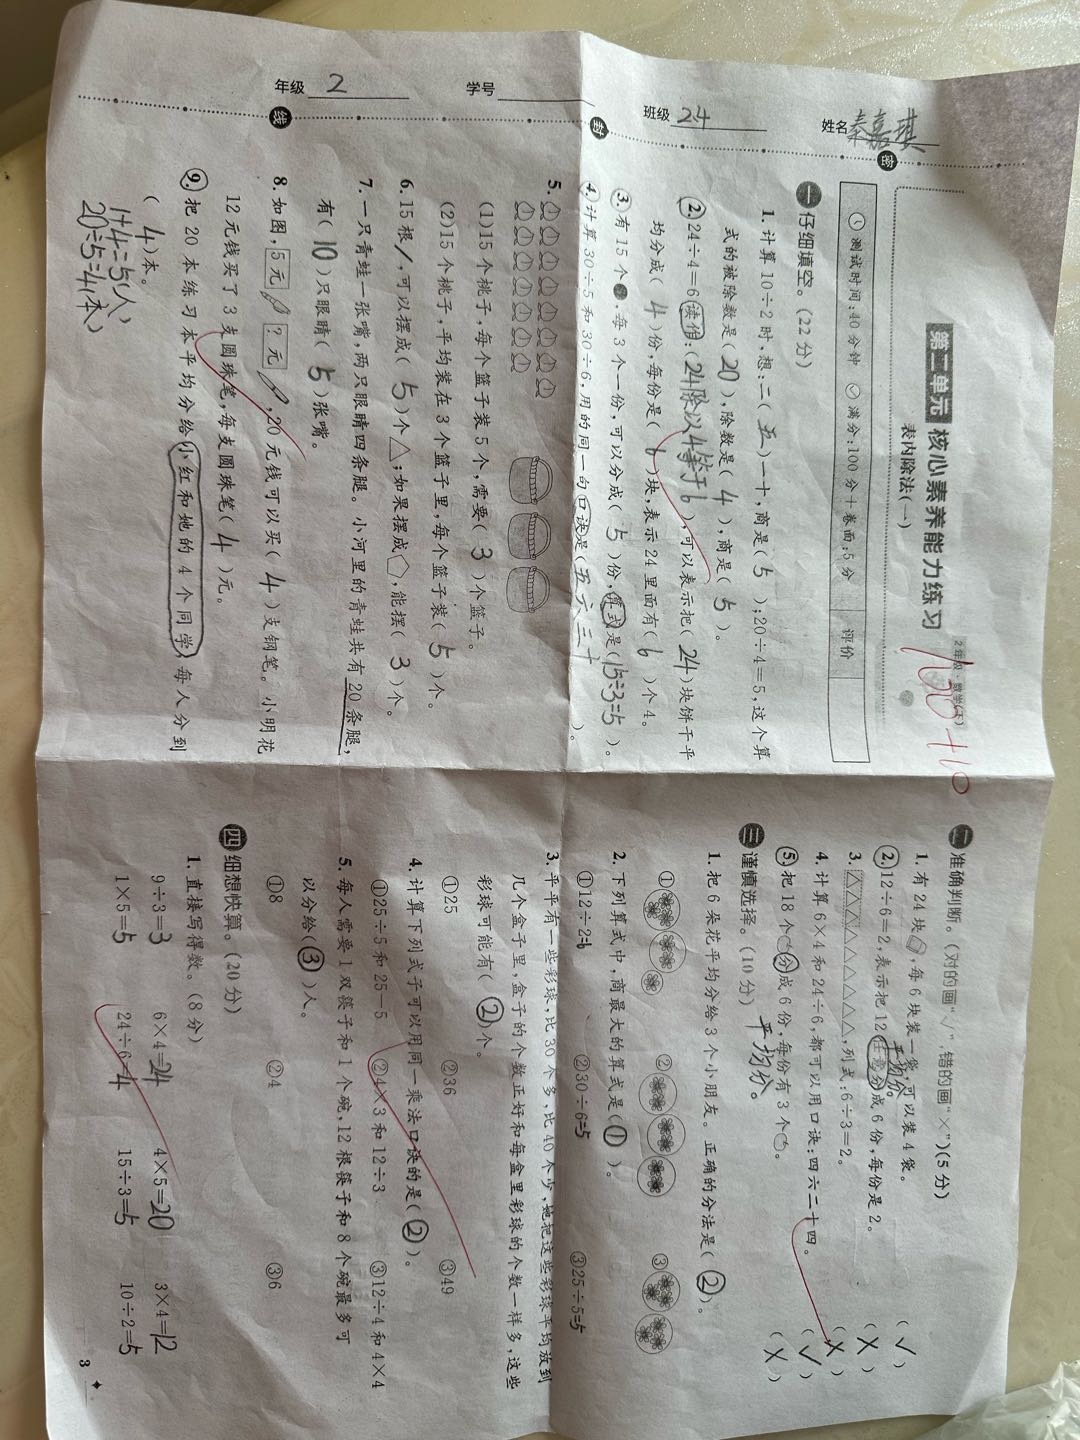 姓名 秦嘉琪
班级 24
学号
年级 2
密
封
线
第二单元 核心素养能力练习
表内除法(一)
2年级·数学(下)
100+10
测试时间:40分钟 满分:100分+卷面:5分 评价
一 仔细填空。(22分)
1. 计算10÷2时,想:二(五)一十,商是(5);20÷4=5,这个算
式的被除数是(20),除数是(4),商是(5)。
2. 24÷4=6读作:(24除以4等于6),可以表示把(24)块饼干平
均分成(4)份,每份是(6)块,表示24里面有(6)个4。
3. 有15个●,每3个一份,可以分成(5)份,算式是(15÷3=5)。
4. 计算30÷5和30÷6,用的同一句口诀是(五六三十)。
5.
(1)15个桃子,每个篮子装5个,需要(3)个篮子。
(2)15个桃子,平均装在3个篮子里,每个篮子装(5)个。
6. 15根/,可以摆成(5)个△;如果摆成⬠,能摆(3)个。
7. 一只青蛙一张嘴,两只眼睛四条腿。小河里的青蛙共有20条腿,
有(10)只眼睛(5)张嘴。
8. 如图,5元 ?元,20元钱可以买(4)支钢笔。小明花
12元钱买了3支圆珠笔,每支圆珠笔(4)元。
9. 把20本练习本平均分给小红和她的4个同学,每人分到
(4)本。
1+4=5(人)
20÷5=4(本)
二 准确判断。(对的画“√”,错的画“×”)(5分)
1. 有24块,每6块装一袋,可以装4袋。 (√)
平均分。
2. 12÷6=2,表示把12任意分成6份,每份是2。 (×)
3. △△△△△△△△△,列式:6÷3=2。 (×)
4. 计算6×4和24÷6,都可以用口诀:四六二十四。 (√)
5. 把18个分成6份,每份有3个。 (×)
平均分。
三 谨慎选择。(10分)
1. 把6朵花平均分给3个小朋友。正确的分法是(②)。
① ② ③
2. 下列算式中,商最大的算式是(①)。
①12÷2=6 ②30÷6=5 ③25÷5=5
3. 平平有一些彩球,比30个多,比40个少,她把这些彩球平均放到
几个盒子里,盒子的个数正好和每盒里彩球的个数一样多,这些
彩球可能有(②)个。
①25 ②36 ③49
4. 计算下列式子可以用同一乘法口诀的是(②)。
①25÷5和25-5 ②4×3和12÷3 ③12÷4和4×4
5. 每人需要1双筷子和1个碗,12根筷子和8个碗最多可
以分给(③)人。
①8 ②4 ③6
四 细想快算。(20分)
1. 直接写得数。(8分)
9÷3=3 6×4=24 4×5=20 3×4=12
1×5=5 24÷6=4 15÷3=5 10÷2=5
3